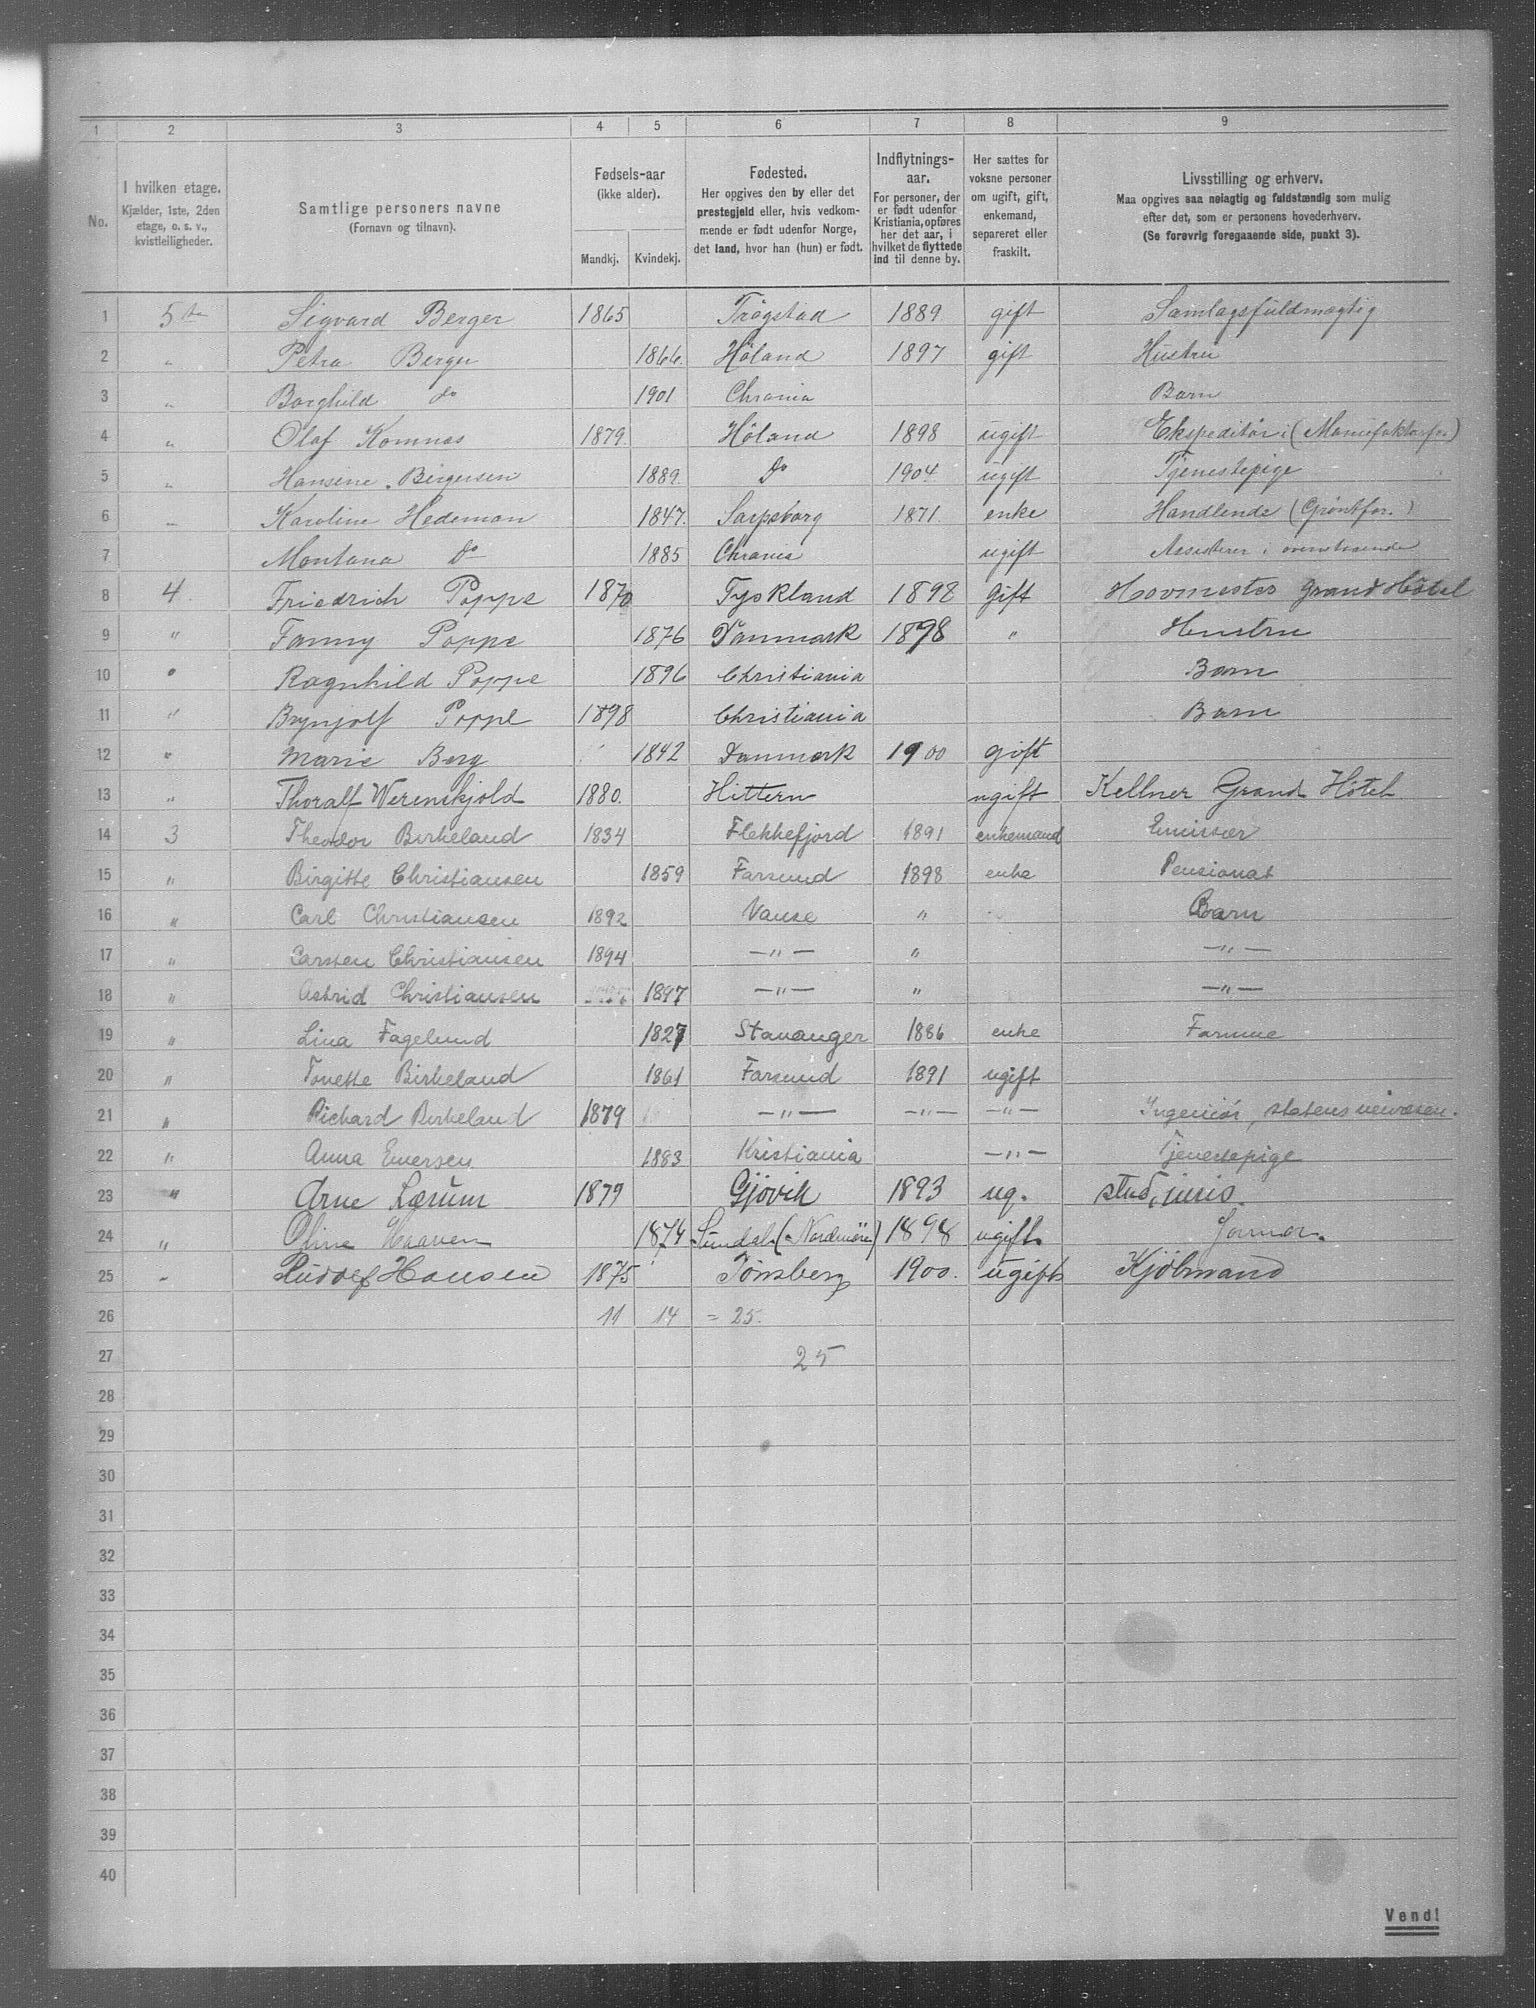 1 2 3 4 5 6 7 8 9
No. I hvilken etage. Kjælder, 1ste, 2den etage, o. s. v., kvistleiligheder. Samtlige personers navne (Fornavn og tilnavn). Fødsels-aar (ikke alder). Mandkj. Kvindekj. Fødested. Her opgives den by eller det prestegjeld eller, hvis vedkommende er født udenfor Norge, det land, hvor han (hun) er født. Indflytnings-aar. For personer, der er født udenfor Kristiania, opføres her det aar, i hvilket de flyttede ind til denne by. Her sættes for voksne personer om ugift, gift, enkemand, separeret eller fraskilt. Livsstilling og erhverv. Maa opgives saa nøiagtig og fuldstændig som mulig efter det, som er personens hovederhverv. (Se forøvrig foregaaende side, punkt 3).
1 5te Sigvard Berger 1865 Trøgstad 1889 gift Samlagsfuldmægtig
2 " Petra Berger 1866. Høland 1897 gift Hustru
3 " Borghild do 1901 Chrania Barn
4 " Olaf Komnæs 1879 Høland 1898 ugift Ekspeditør i (Manufakturfor.)
5 " Hansine Birgersen 1889. Do 1904 ugift Tjenestepige
6 " Karoline Hedeman 1847. Sarpsborg 1871 enke Handlende (Grøntfor.)
7 Montana Do 1885 Chrania ugift Assisterer i ovenstaaende
8 4 Friedrich Poppe 1870 Tyskland 1898 gift Hovmester Grand Hôtel
9 " Fanny Poppe 1876 Danmark 1898 " Hustru
10 " Ragnhild Poppe 1896 Christiania Barn
11 " Brynjolf Poppe 1898 Christiania Barn
12 " Marie Berg 1842 Danmark 1900 gift
13 " Thoralf Werenskjold 1880. Hittern ugift Kellner Grand Hôtel
14 3 Theodor Birkeland 1834 Flekkefjord 1891 enkemand Emissær
15 " Birgitte Christiansen 1859 Farsund 1898 enke Pensionat
16 " Carl Christiansen 1892 Vanse " Barn
17 " Carsten Christiansen 1894 — " — " — " —
18 " Astrid Christiansen 1897 — " — " — " —
19 " Lina Fagelund 1827 Stavanger 1886 enke Farmue
20 " Tonette Birkeland 1861 Farsund 1891 ugift
21 " Richard Birkeland 1879 — " — — " — — " — Ingeniør, statens veivæsen.
22 " Anna Enersen 1883 Kristiania — " — Tjenestepige
23 " Arne Lærum 1879 Gjøvik 1893 ug. stud. juris.
24 " Oline Haaven 1874 Sundal (Nordmøre) 1898 ugift
25 " Hudolf Hansen 1875 Tønsberg 1900. ugift Kjøbmand
26 11 14 = 25.
27 25
28
29
30
31
32
33
34
35
36
37
38
39
40
Vend!